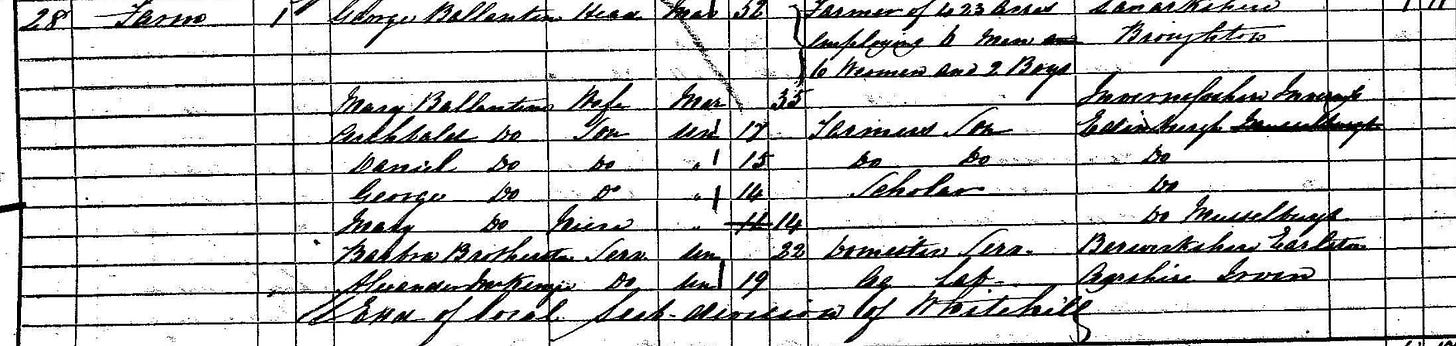 28 Farm 1 George Ballantine Head Mar 52 Farmer of 423 Acres Lanarkshire
employing 6 Men Broughton
6 Women and 2 Boys
Mary Ballantine Wife Mar 35 Invernesshire
Archbald Do Son Un 17 Farmers Son Edinburgh Musselburgh
Daniel Do Do " 15 Do Do Do
George Do Do " 14 Scholar Do
Mary Do Niece " 14 14 Do Musselburgh
Barbra Serv Un 22 Domestic Serv. Berwickshire Earlston
Alexander McKenzie Do Un 19 Ag Lab. Ayrshire Irvin
End of local Sub-division of Whitehill